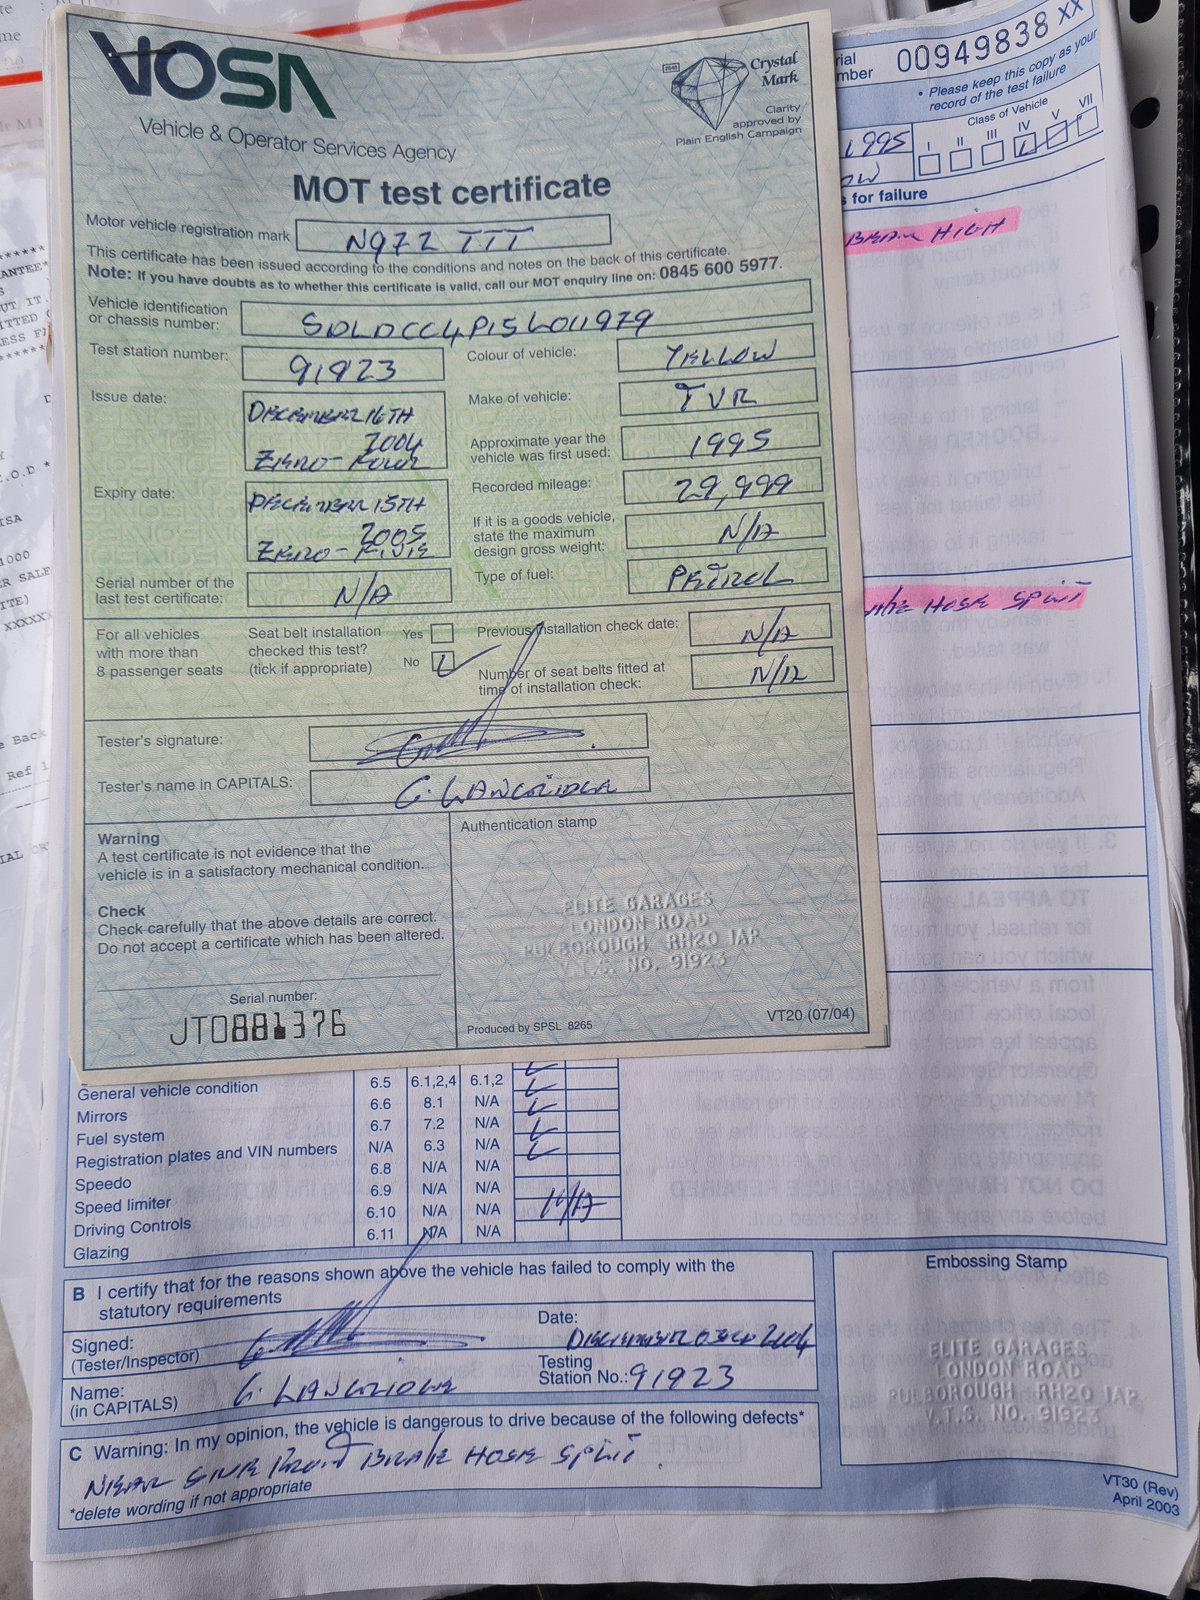 VOSA
Vehicle & Operator Services Agency
Crystal
Mark
Clarity
approved by
Plain English Campaign
MOT test certificate
Motor vehicle registration mark N972 TTT
This certificate has been issued according to the conditions and notes on the back of this certificate.
Note: If you have doubts as to whether this certificate is valid, call our MOT enquiry line on: 0845 600 5977.
Vehicle identification
or chassis number: SDLDCC4P15L011979
Test station number: 91923
Colour of vehicle: YELLOW
Issue date: DECEMBER 16TH
2004
ZERO-FOUR
Make of vehicle: TVR
Approximate year the
vehicle was first used: 1995
Expiry date: DECEMBER 15TH
2005
ZERO-FIVE
Recorded mileage: 29,999
If it is a goods vehicle,
state the maximum
design gross weight: N/A
Serial number of the
last test certificate: N/A
Type of fuel: PETROL
For all vehicles
with more than
8 passenger seats
Seat belt installation
checked this test?
(tick if appropriate)
Yes
No
Previous installation check date: N/A
Number of seat belts fitted at
time of installation check: N/A
Tester's signature:
Tester's name in CAPITALS: G. LANGRIDGE
Warning
A test certificate is not evidence that the
vehicle is in a satisfactory mechanical condition.
Check
Check carefully that the above details are correct.
Do not accept a certificate which has been altered.
Serial number:
JT0881376
Authentication stamp
ELITE GARAGES
LONDON ROAD
PULBOROUGH RH20 1AP
V.T.S. NO. 91923
Produced by SPSL 8265
VT20 (07/04)
00949838 XX
• Please keep this copy as your
record of the test failure
Class of Vehicle
I II III IV V VII
1995
s for failure
BEAM HIGH
HOSE SPLIT
General vehicle condition 6.5 6.1,2,4 6.1,2
Mirrors 6.6 8.1 N/A
Fuel system 6.7 7.2 N/A
Registration plates and VIN numbers N/A 6.3 N/A
Speedo 6.8 N/A N/A
Speed limiter 6.9 N/A N/A N/A
Driving Controls 6.10 N/A N/A
Glazing 6.11 N/A N/A
B I certify that for the reasons shown above the vehicle has failed to comply with the
statutory requirements
Signed:
(Tester/Inspector)
Date: DECEMBER 03RD 2004
Name:
(in CAPITALS) G. LANGRIDGE
Testing
Station No.: 91923
C Warning: In my opinion, the vehicle is dangerous to drive because of the following defects*
NEAR SIDE FRONT BRAKE HOSE SPLIT.
*delete wording if not appropriate
Embossing Stamp
ELITE GARAGES
LONDON ROAD
PULBOROUGH RH20 1AP
V.T.S. NO. 91923
VT30 (Rev)
April 2003